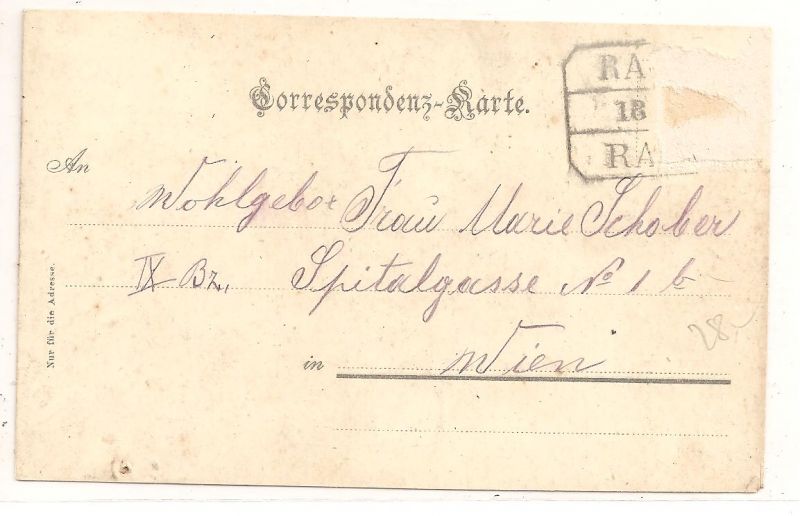 Correspondenz-Karte.
RA
18
RA
An
Wohlgebor Frau Marie Schober
IX Bz. Spitalgasse No 1 b
in Wien
Nur für die Adresse.
28.-